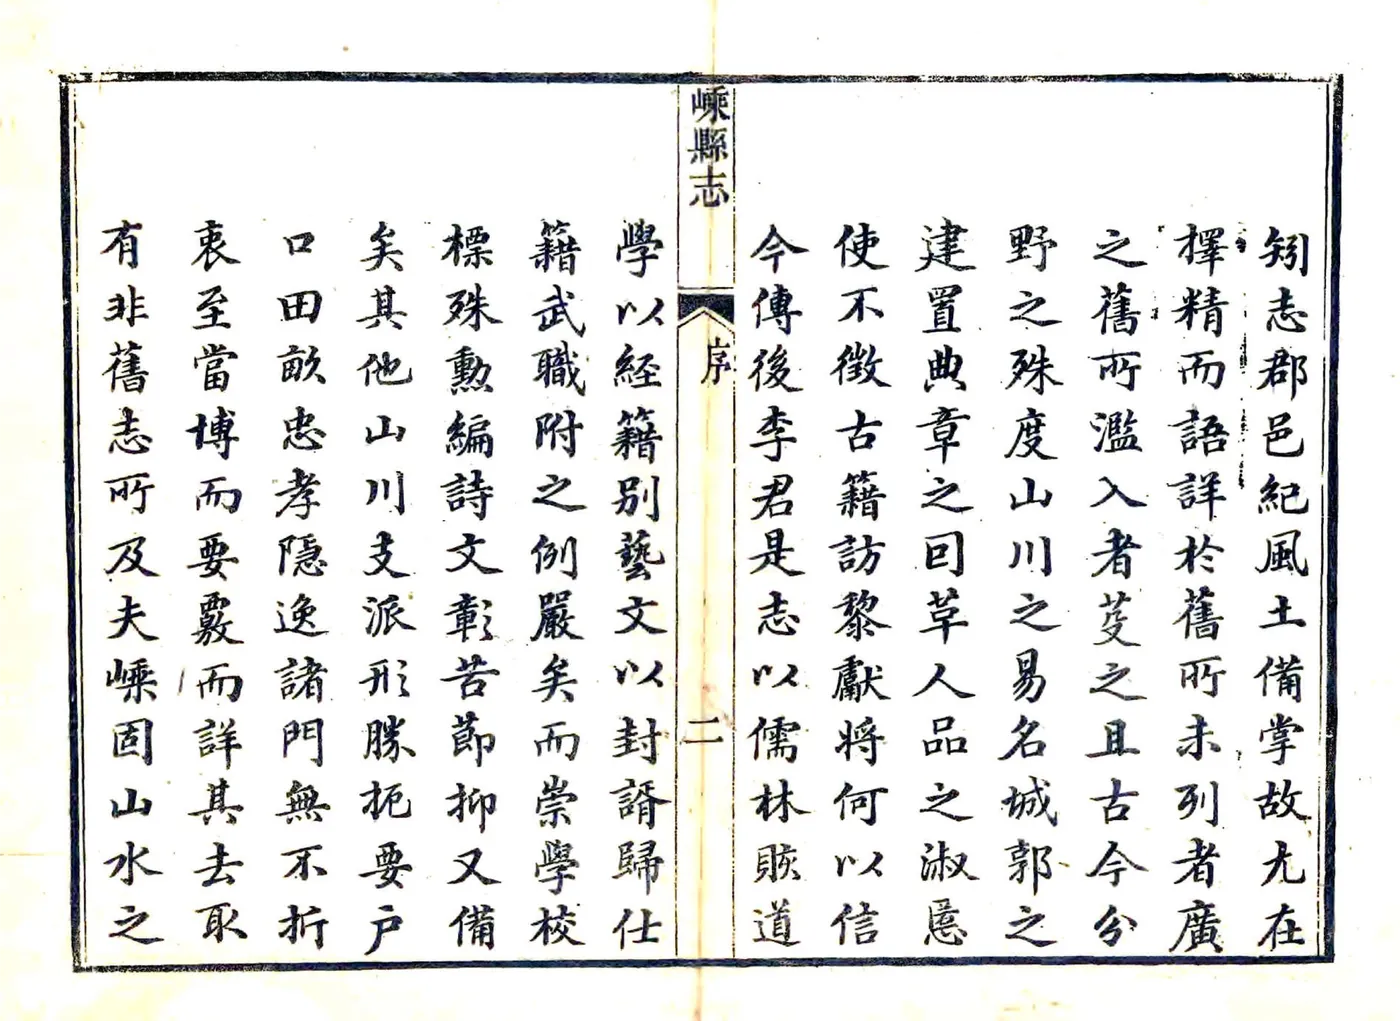 矧志郡邑紀風土備掌故尤在
擇精而語詳於舊所未列者廣
之舊所濫入者芟之且古今分
野之殊度山川之易名城郭之
建置典章之因革人品之淑慝
使不徵古籍訪黎獻將何以信
今傳後李君是志以儒林賅道
嵊縣志
序
二
學以經籍别藝文以封諝歸仕
籍武職附之例嚴矣而崇學校
標殊勲編詩文彰苦節抑又備
矣其他山川支派形勝扼要户
口田畝忠孝隱逸諸門無不折
衷至當博而要覈而詳其去取
有非舊志所及夫嵊固山水之